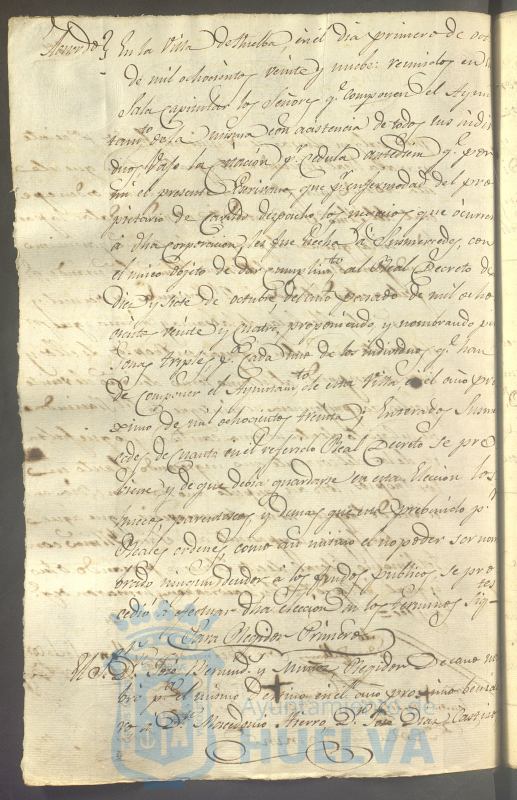 Acuerdo} En la Villa de Huelba, en el dia primero de oct
de mil ochocientos veinte y nuebe: reunidos en la
Sala capitular los Señores q.e componen el Ayun
tam.to de la misma con asistencia de todos sus indivi
duos bajo la citacion p.r cedula antediem q.e por
mi el presente Escrivano, que p.r enfermedad del pro
pietario de Cavildo despacho los negocios que ocurren
á dha Corporacion, les fue hecha á Sus mercedes, con
el unico objeto de dar cumplim.to al Real Decreto de
Diez y siete de octubre, del año pasado de mil ocho
ciento veinte y cuatro, proponiendo, y nombrando per
sonas triples p.a cada uno de los individuos q.e han
de componer el Ayuntam.to de esta Villa en el año pro
ximo de mil ochocientos treinta; Enterados Sus mer
cedes de cuanto en el referido Real Decreto se pre
biene y de que debia guardarse en esta Eleccion los
huecos, parentescos, y demas que está prebenido p.r
Reales ordenes, como asi mismo el no poder ser nom
brado ningun deudor á los fondos publicos, se pro
cedió á efectuar dha Eleccion en los terminos sig.tes
Para Regidor Primero
El S.r D.n José y Muñoz Regidor Decano no
bró p.a el mismo Destino en el año proximo benide
ro á D.n Macedonio D.n José Diaz
Ayuntamiento de
HUELVA